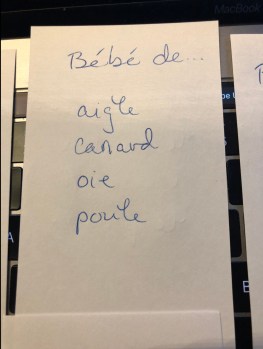 MacBook
Bébé de...
aigle
canard
oie
poule
A